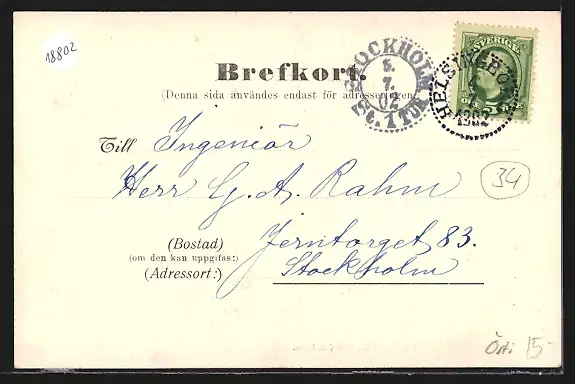 18802
SVERIGE
5 ÖRE
STOCKHOLM
5.
7.
02
SC. 1 TUR
HELSINGBORG
1902
Brefkort.
(Denna sida användes endast för adresseringen)
Till Ingeniör
Herr G. A. Rahm
34
(Bostad) Jerntorget 83.
(om den kan uppgifas:)
(Adressort:) Stockholm
15